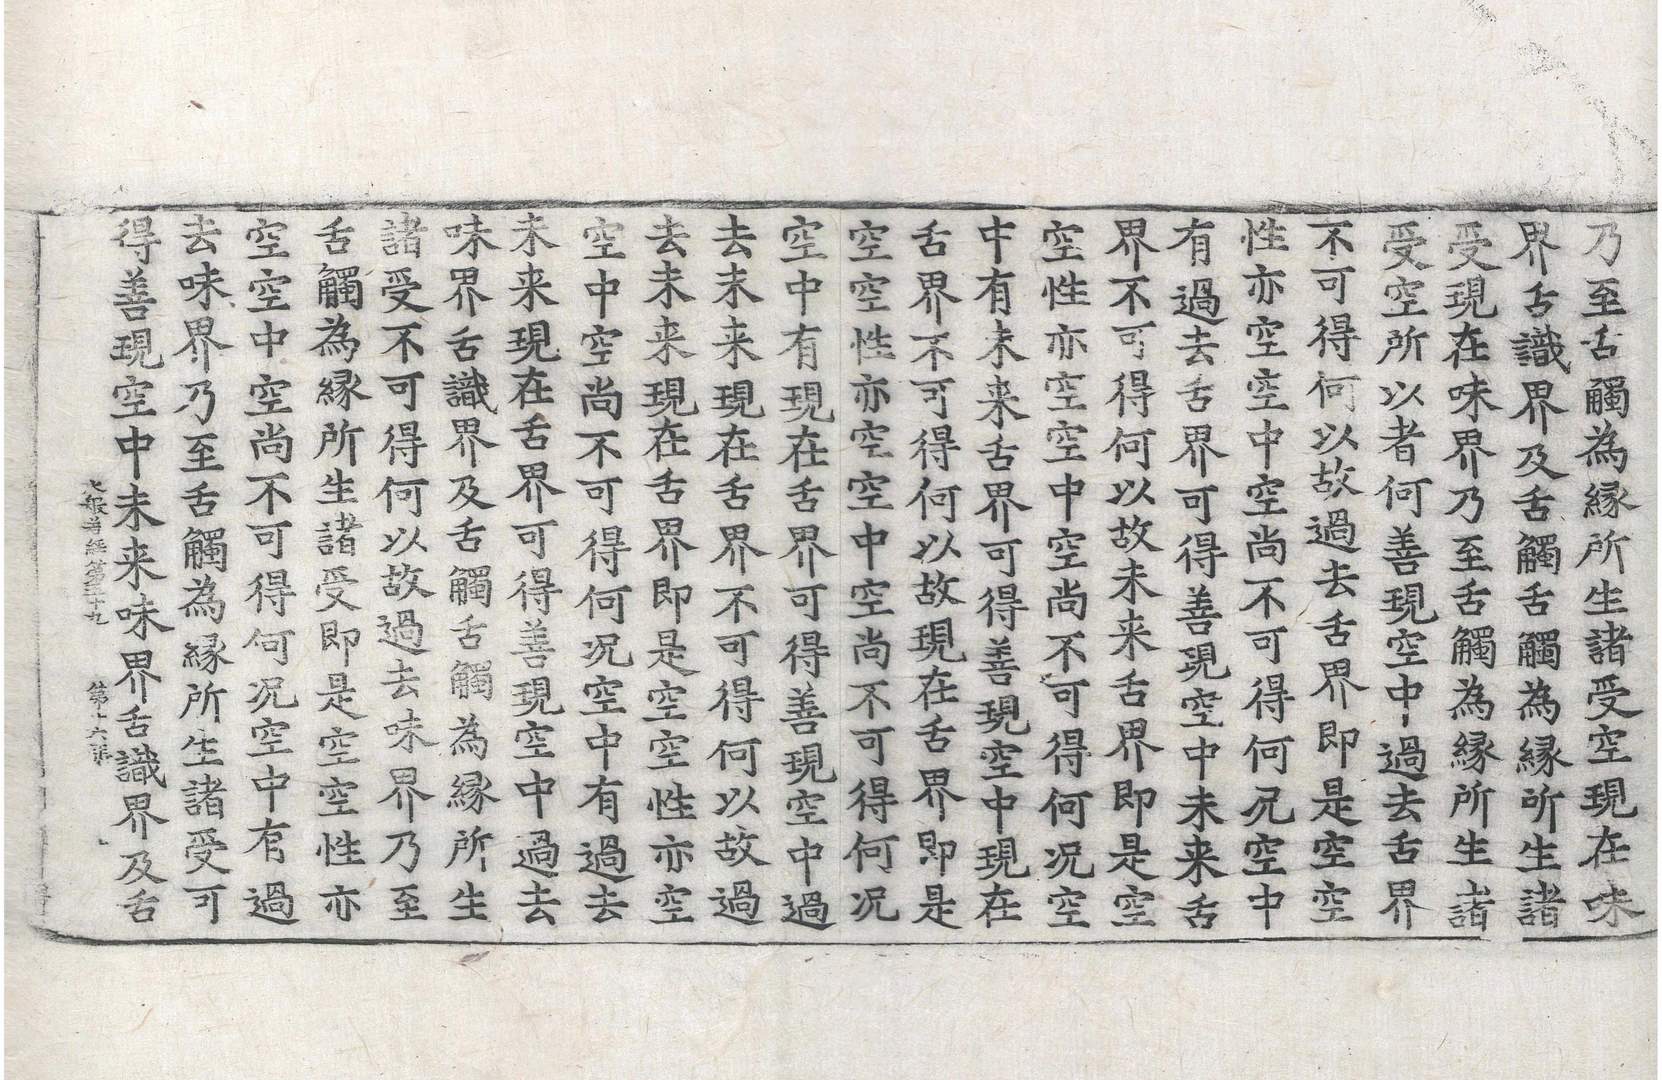 乃至舌觸為縁所生諸受空現在味
界舌識界及舌觸舌觸為縁所生諸
受現在味界乃至舌觸為縁所生諸
受空所以者何善現空中過去舌界
不可得何以故過去舌界即是空空
性亦空空中空尚不可得何况空中
有過去舌界可得善現空中未来舌
界不可得何以故未来舌界即是空
空性亦空空中空尚不可得何况空
中有未来舌界可得善現空中現在
舌界不可得何以故現在舌界即是
空空性亦空空中空尚不可得何况
空中有現在舌界可得善現空中過
去未来現在舌界不可得何以故過
去未来現在舌界即是空空性亦空
空中空尚不可得何况空中有過去
未来現在舌界可得善現空中過去
味界舌識界及舌觸舌觸為縁所生
諸受不可得何以故過去味界乃至
舌觸為縁所生諸受即是空空性亦
空空中空尚不可得何况空中有過
去味界乃至舌觸為縁所生諸受可
得善現空中未来味界舌識界及舌
大般若經第五十九 第十六張